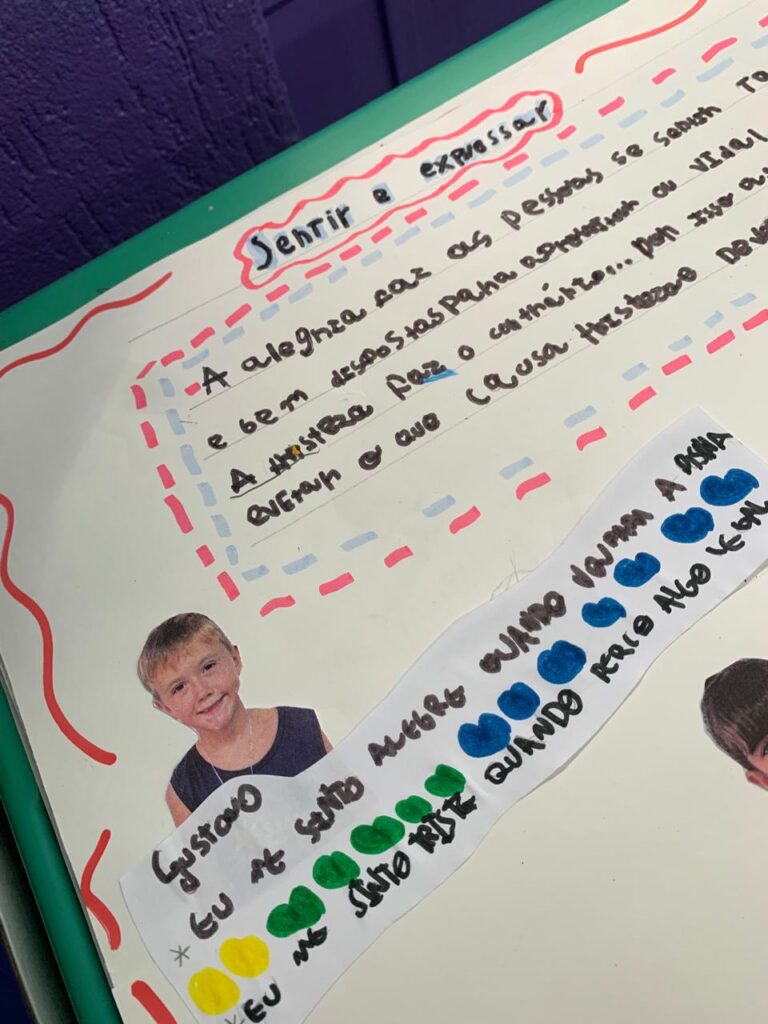 Sentir e expressar
A alegria faz as pessoas se sentem
e bem dispostas para aprenderem ou vidal
A tristeza faz o contrário... por isso
evitar o que causa tristeza e
Gustavo
* EU ME SINTO ALEGRE QUANDO VOU PARA A
* EU ME SINTO TRISTE QUANDO PERCO ALGO LEGAL